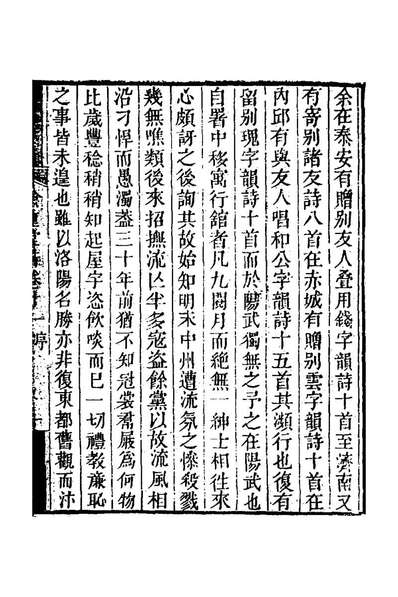 余在泰安有贈别友人疊用錢字韻詩十首至濟南又
有寄别諸友詩八首在赤城有贈别雲字韻詩十首在
内邱有與友人唱和公字韻詩十五首其瀕行也復有
留别瑰字韻詩十首而於陽武獨無之予之在陽武也
自署中移寓行舘者凡九閱月而絶無一紳士相往來
心頗訝之後詢其故始知明末中州遭流氛之慘殺戮
幾無噍類後來招撫流亡半多寇盗餘黨以故流風相
沿刁悍而愚濁葢三十年前猶不知冠裳君嚴為何物
比歲豐稔稍稍知起屋字恣飲啖而巳一切禮教㢘恥
之事皆未遑也雖以洛陽名勝亦非復東都舊觀而汴